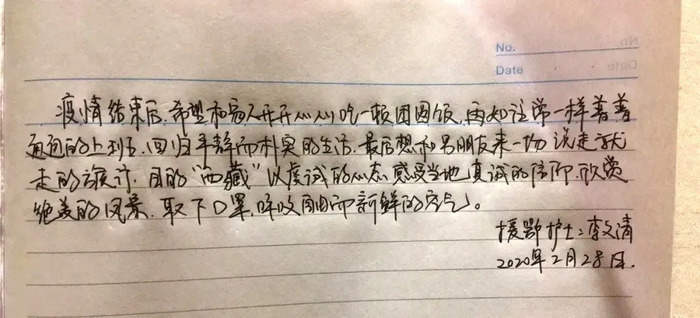 No.
Date
疫情结束后,希望和家人开开心心吃一顿团圆饭,再如往常一样普普
通通的上班,回归平静而朴实的生活,最后想和男朋友来一场说走就
走的旅行,目的“西藏”以虔诚的心态感受当地真诚的信仰,欣赏
绝美的风景,取下口罩,呼吸自由而新鲜的空气。
援鄂护士:李文清
2020年2月28日.